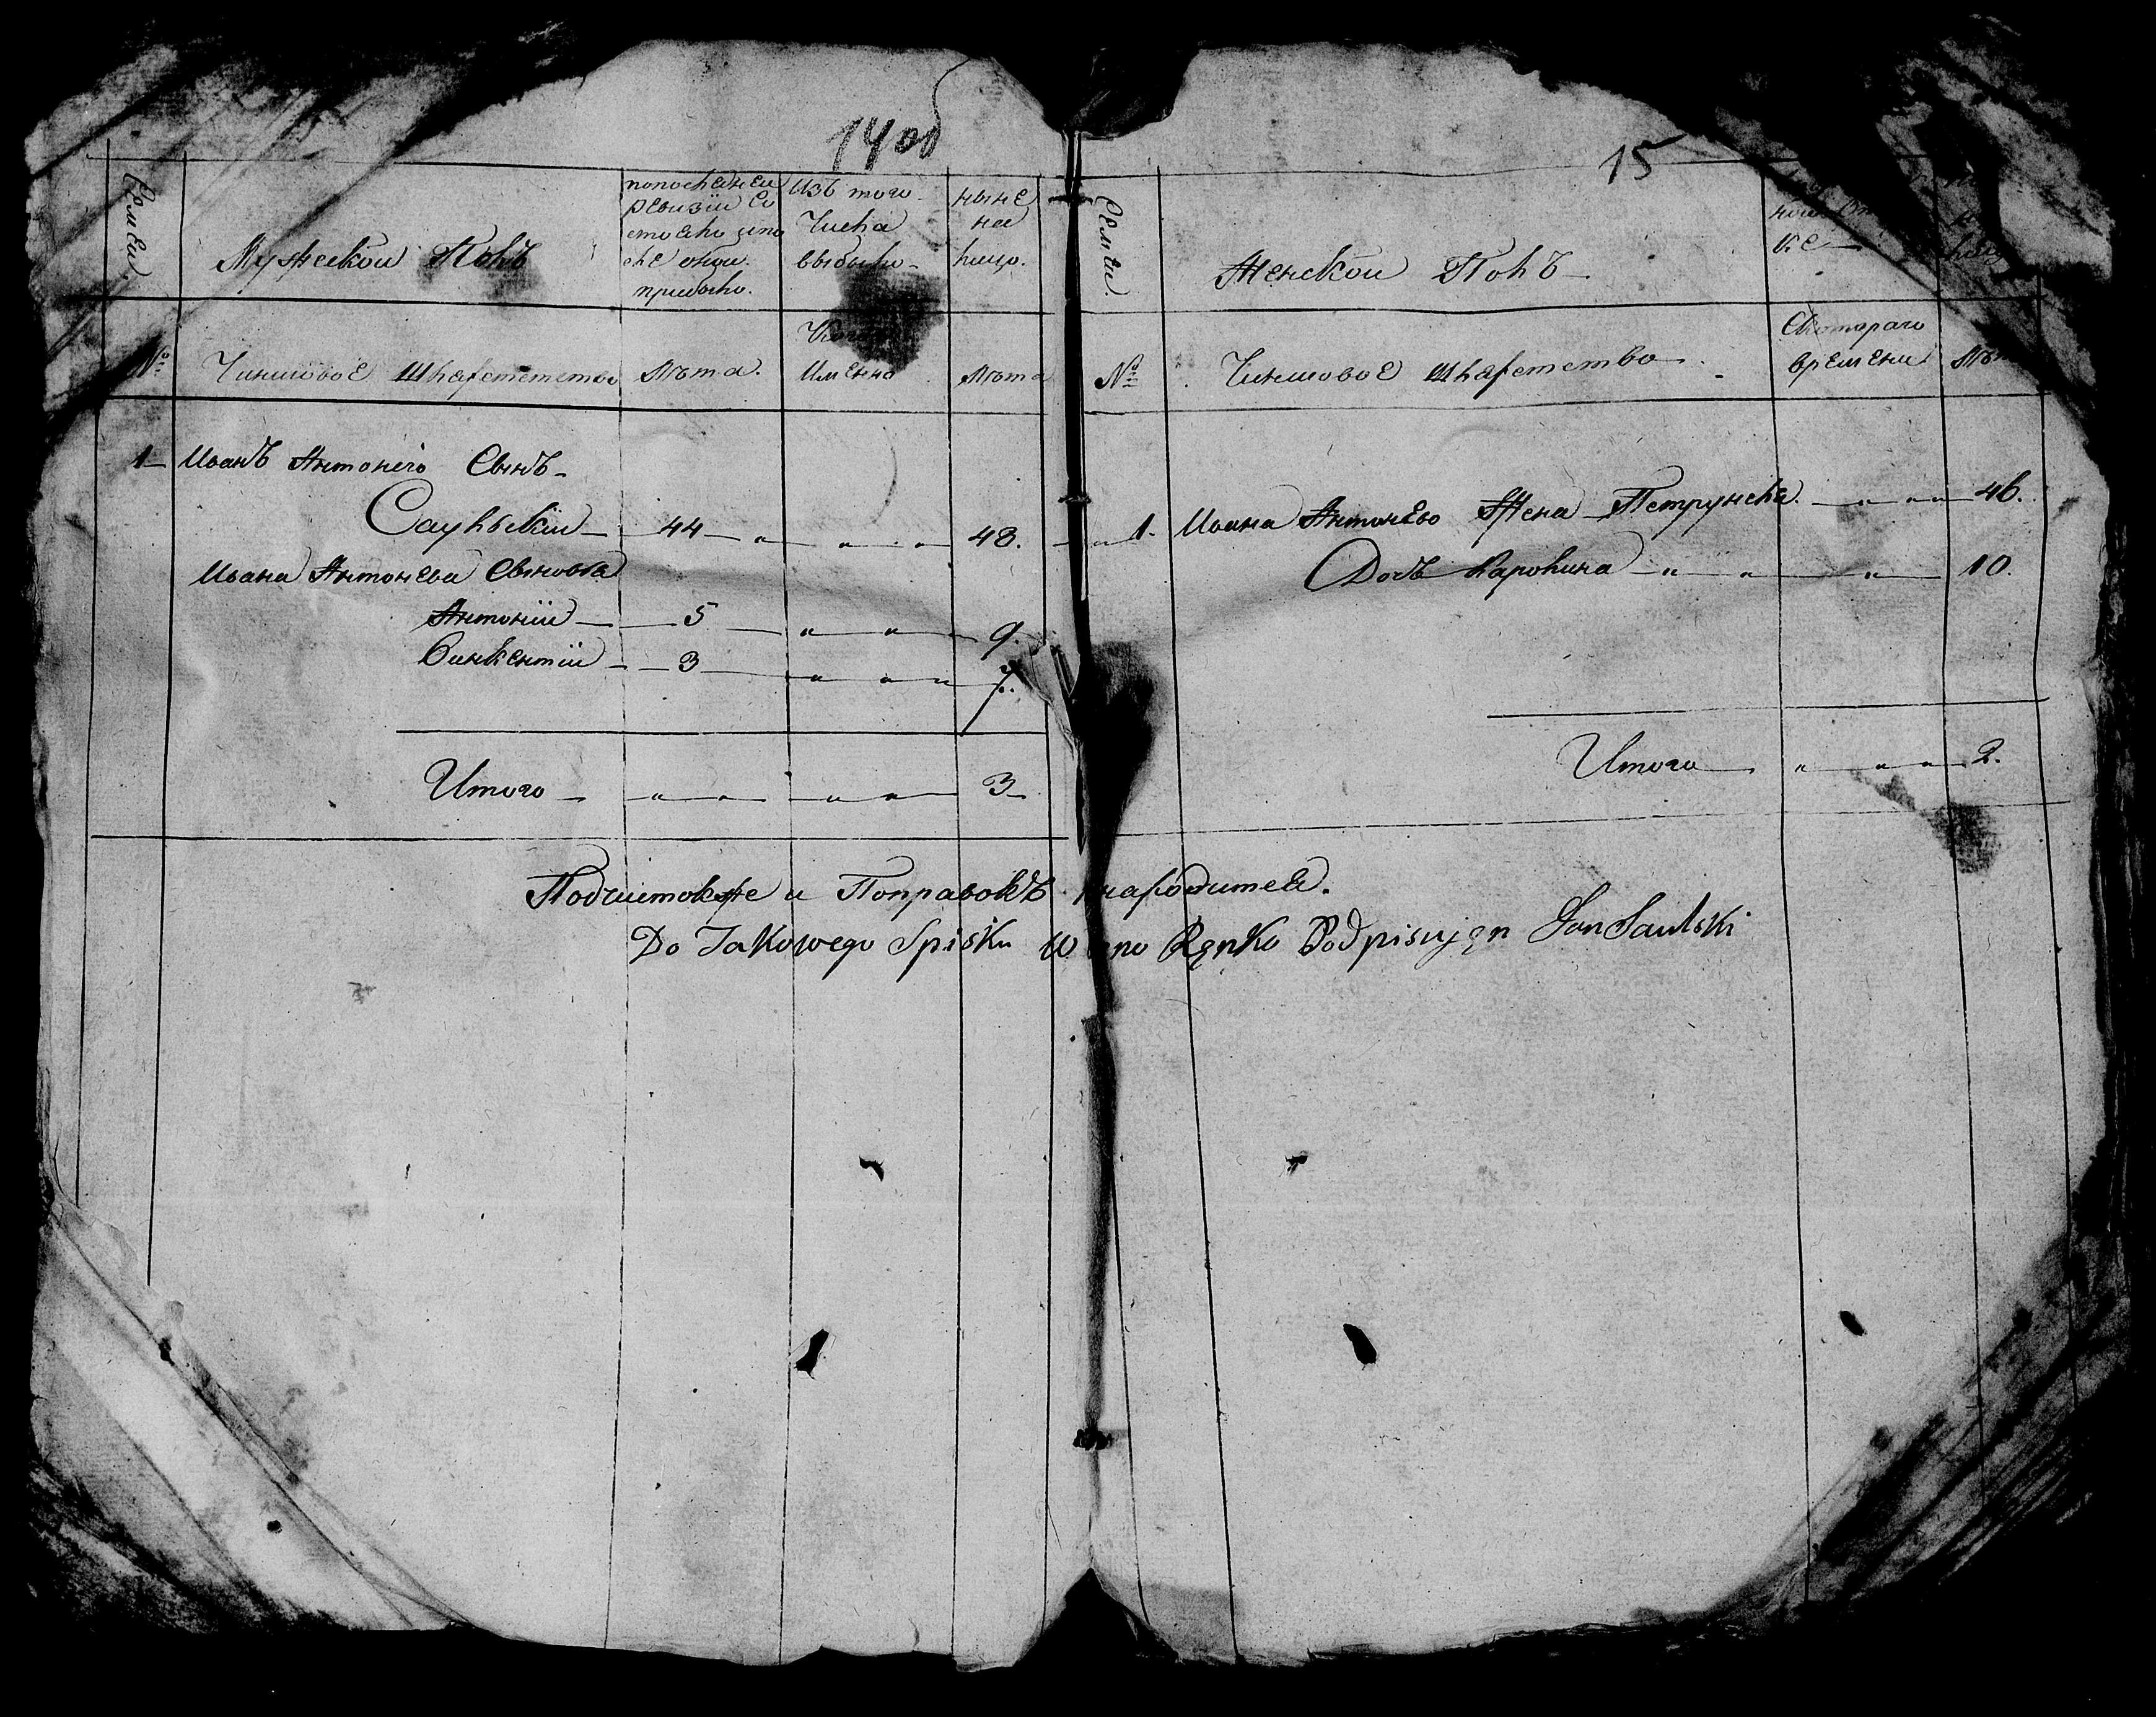 14 об
15
Семьи
Мужеской Полъ
попоследнеи
ревизии со
стояло ипо
сле онои
прибыло.
Изъ того
Числа
выбыло
ныне
на
лицо.
№
Чиншовое Шлафетство
Лѣта.
Именно
Лѣта
1 Иванъ Антонего Сынъ
Саульский 44 48.
Ивана Антонева Сыновъя
Антоний 5 9.
Винкентий 3 7.
Итого 3
Семьи
Женской Полъ
№
Чиншовое Шлафетство
Скотораго
времени
1. Ивана Антонево Жена Петрунеля 46.
Дочь Каролина 10.
Итого 2.
Подчистокже и Поправокъ
Do Takowego Spisku Rękko Podpisujęn Jan Saulski